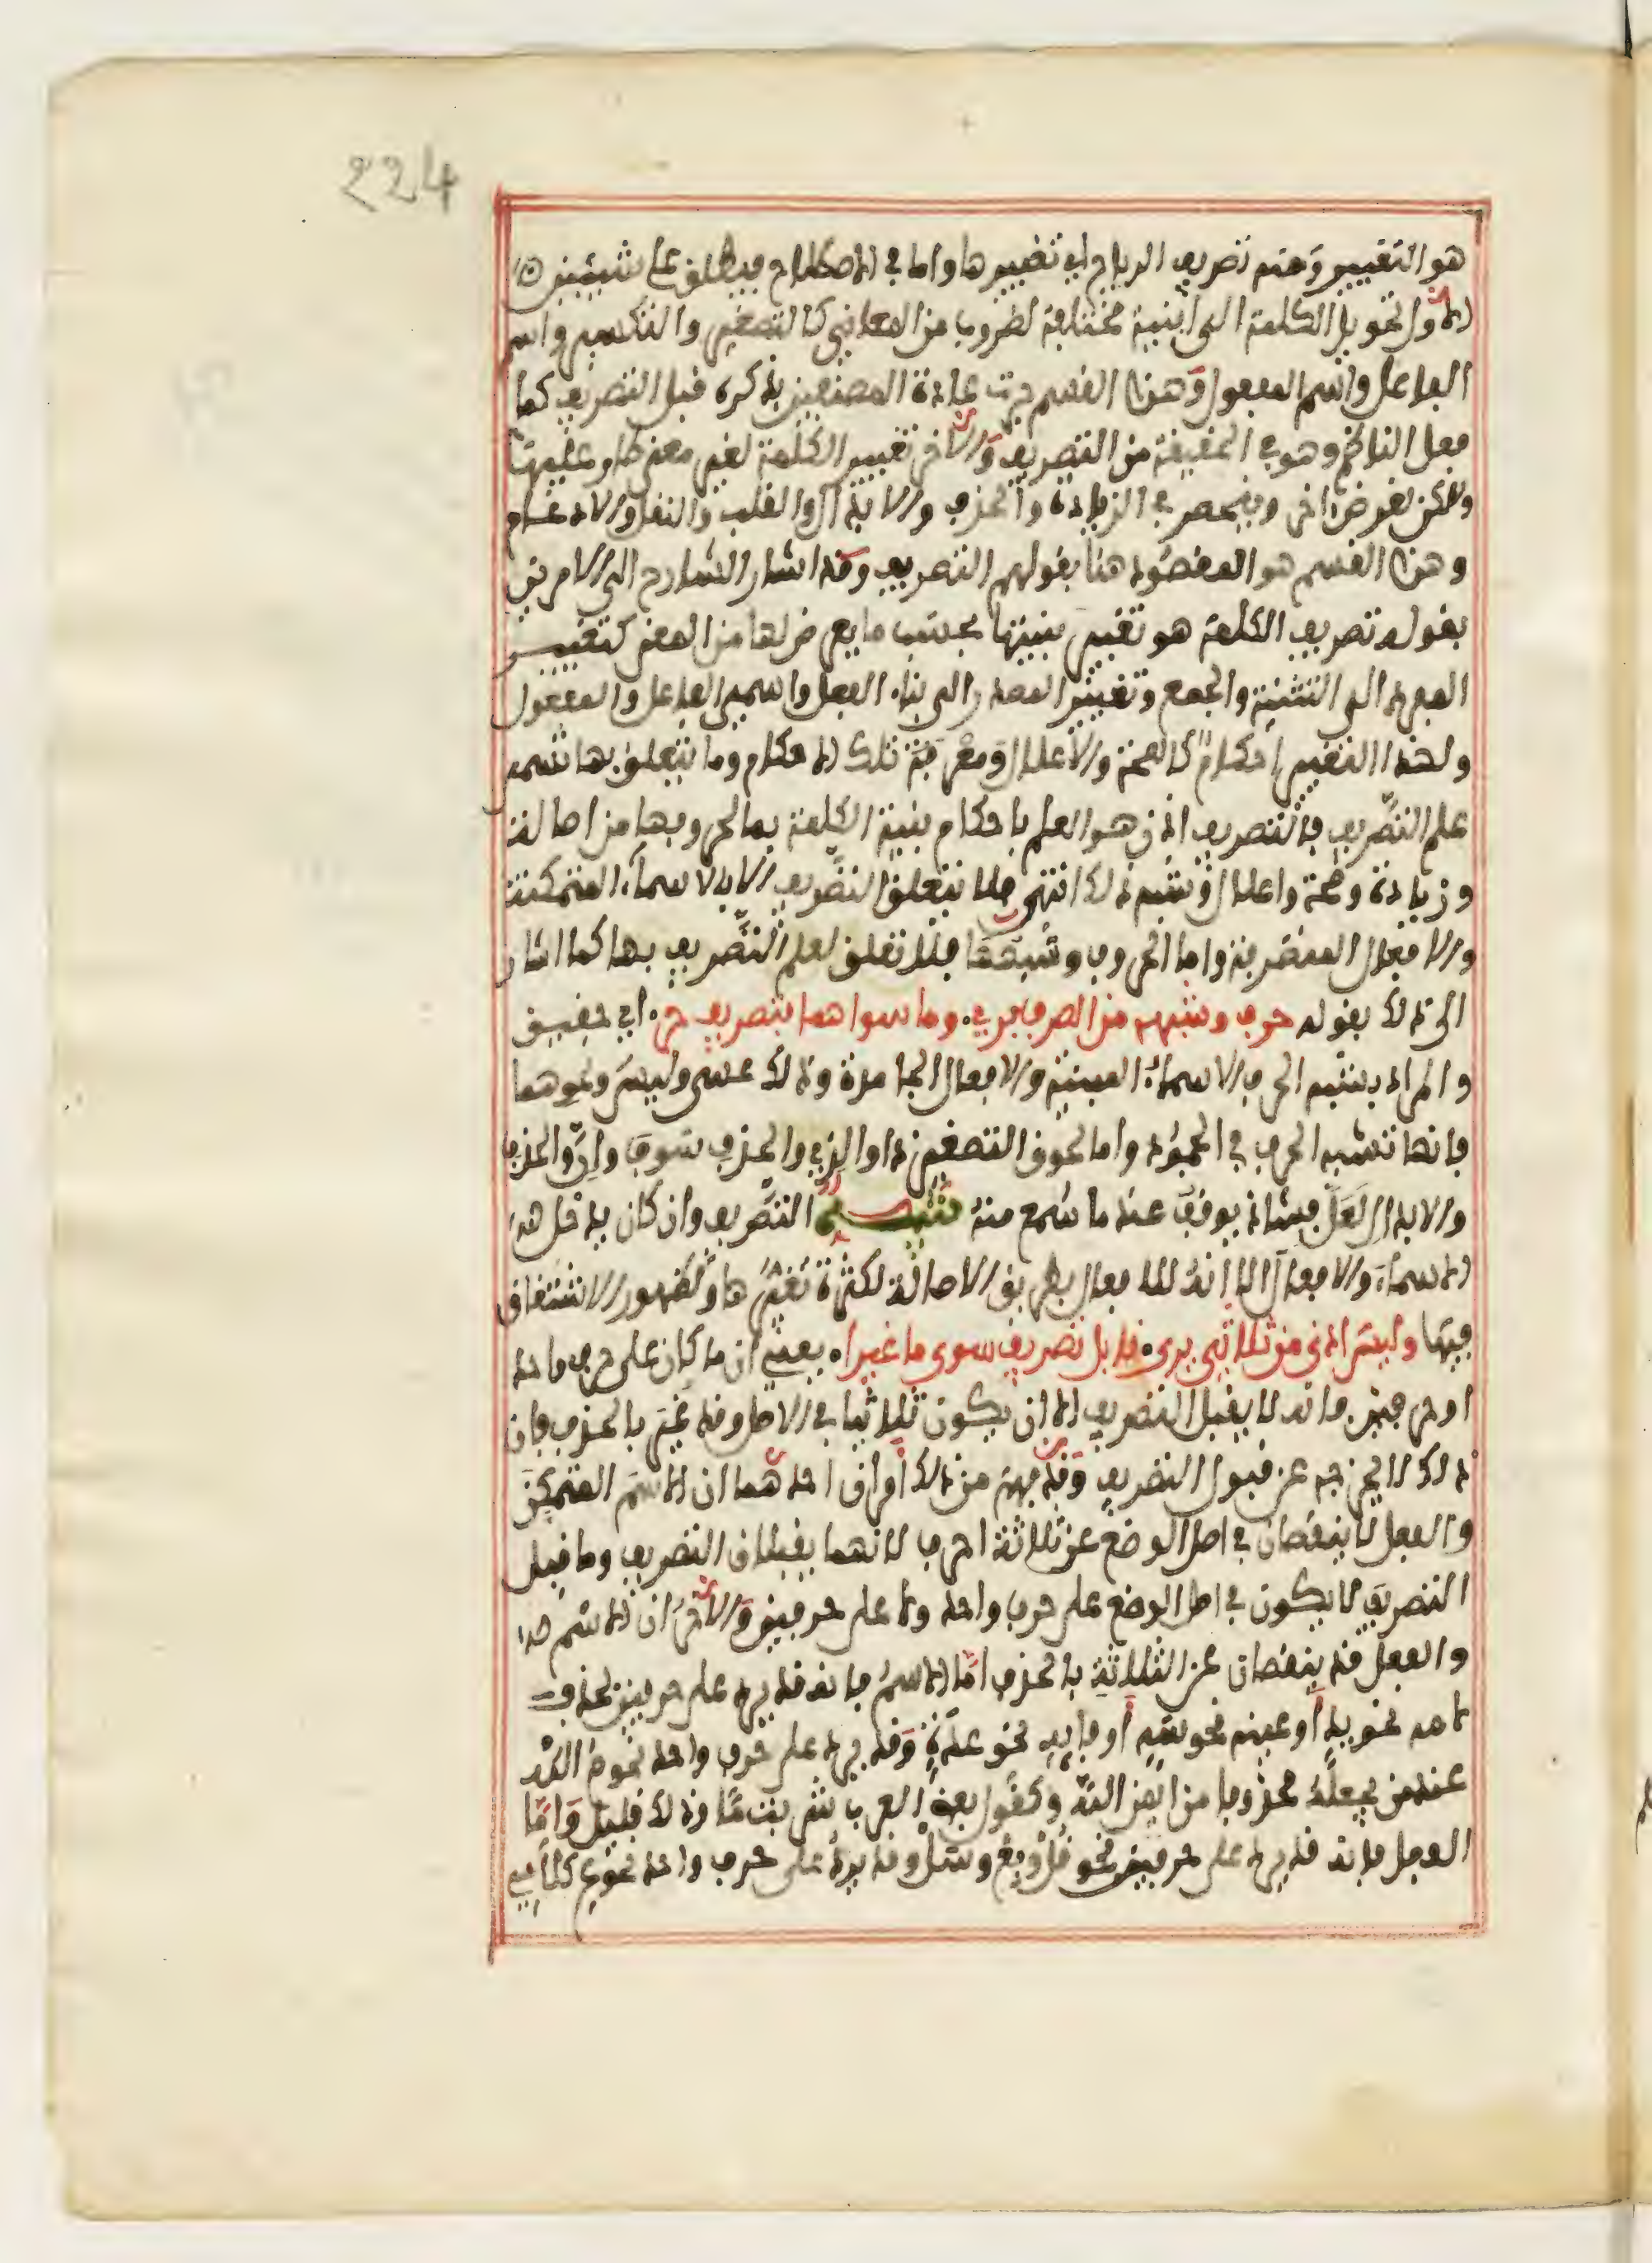 224
هو التغيير ومنه تصريف الرياح اي تغييرها واما في الاصطلاح فيطلق على شيئين
الاول تحويل الكلمة الى ابنية مختلفة لضروب من المعاني كالتصغير والتكسير واسم
الفاعل واسم المفعول وهذا القسم جرت عادة المصنفين بذكره قبل التصريف كما
فعل الناظم وهو في الحقيقة من التصريف والاخر تغيير الكلمة لغير معنى طار عليها
ولكن لغرض اخر وينحصر في الزيادة والحذف والابدال والقلب والنقل والادغام
وهذا القسم هو المقصود هنا بقولهم التصريف وقد اشار الشارح الى الامرين
بقوله تصريف الكلمة هو تغيير بنيتها بحسب ما يعرض لها من المعنى كتغيير
المفرد الى التثنية والجمع وتغيير المصدر الى بناء الفعل واسمي الفاعل والمفعول
ولهذا التغيير احكام كالصحة والاعلال ومعرفة تلك الاحكام وما يتعلق بها تسمى
علم التصريف فالتصريف اذن هو العلم باحكام بنية الكلمة بما لحروفها من اصالة
وزيادة وصحة واعلال وشبه ذلك انتهى فلا يتعلق التصريف الا بالاسماء المتمكنة
والافعال المتصرفة واما الحروف وشبهها فلا تعلق لعلم التصريف بها كما اشار
الى ذلك بقوله حرف وشبهه من الصرف بري. وما سواهما بتصريف حر. اي حقيق
والمراد بشبه الحرف الاسماء المبنية والافعال الجامدة وذلك عسى وليس ونحوهما
فانها تشبه الحرف في الجمود واما لحوق التصغير ذا والذي والحذف سوف وان والحذف
والابدال لعل فشاذ يوقف عند ما سمع منه تنبيه التصريف وان كان يدخل هذ
الاسماء والافعال الا انه للافعال بطريق الاصالة لكثرة تغيرها ولظهور الاشتقاق
فيها وليس ادنى من ثلاثي يرى. قابل تصريف سوى ما غيرا. يعني ان ما كان على حرف واحد
او حرفين فانه لا يقبل التصريف الا ان يكون ثلاثيا في الاصل وقد غير بالحذف فان
ذلك لا يخرجه عن قبول التصريف وقد فهم من ذلك امران احدهما ان الاسم المتمكن
والفعل لا ينقصان في اصل الوضع عن ثلاثة احرف لانهما يقبلان التصريف وما قبل
التصريف لا يكون في اصل الوضع على حرف واحد ولا على حرفين والاخر ان الاسم
والفعل قد ينقصان عن الثلاثة بالحذف اما الاسم فانه قد يرد على حرفين بحذف
لامه نحو يد او عينه نحو سه او فايه نحو عدة وقد يرد على حرف واحد نحو م الله
عند من يجعله محذوفا من ايمن الله وكقول بعض العرب شربت ما وذلك قليل واما
الفعل فانه قد يرد على حرفين نحو قل وبع وسل وقد يرد على حرف واحد نحو ع كلامي